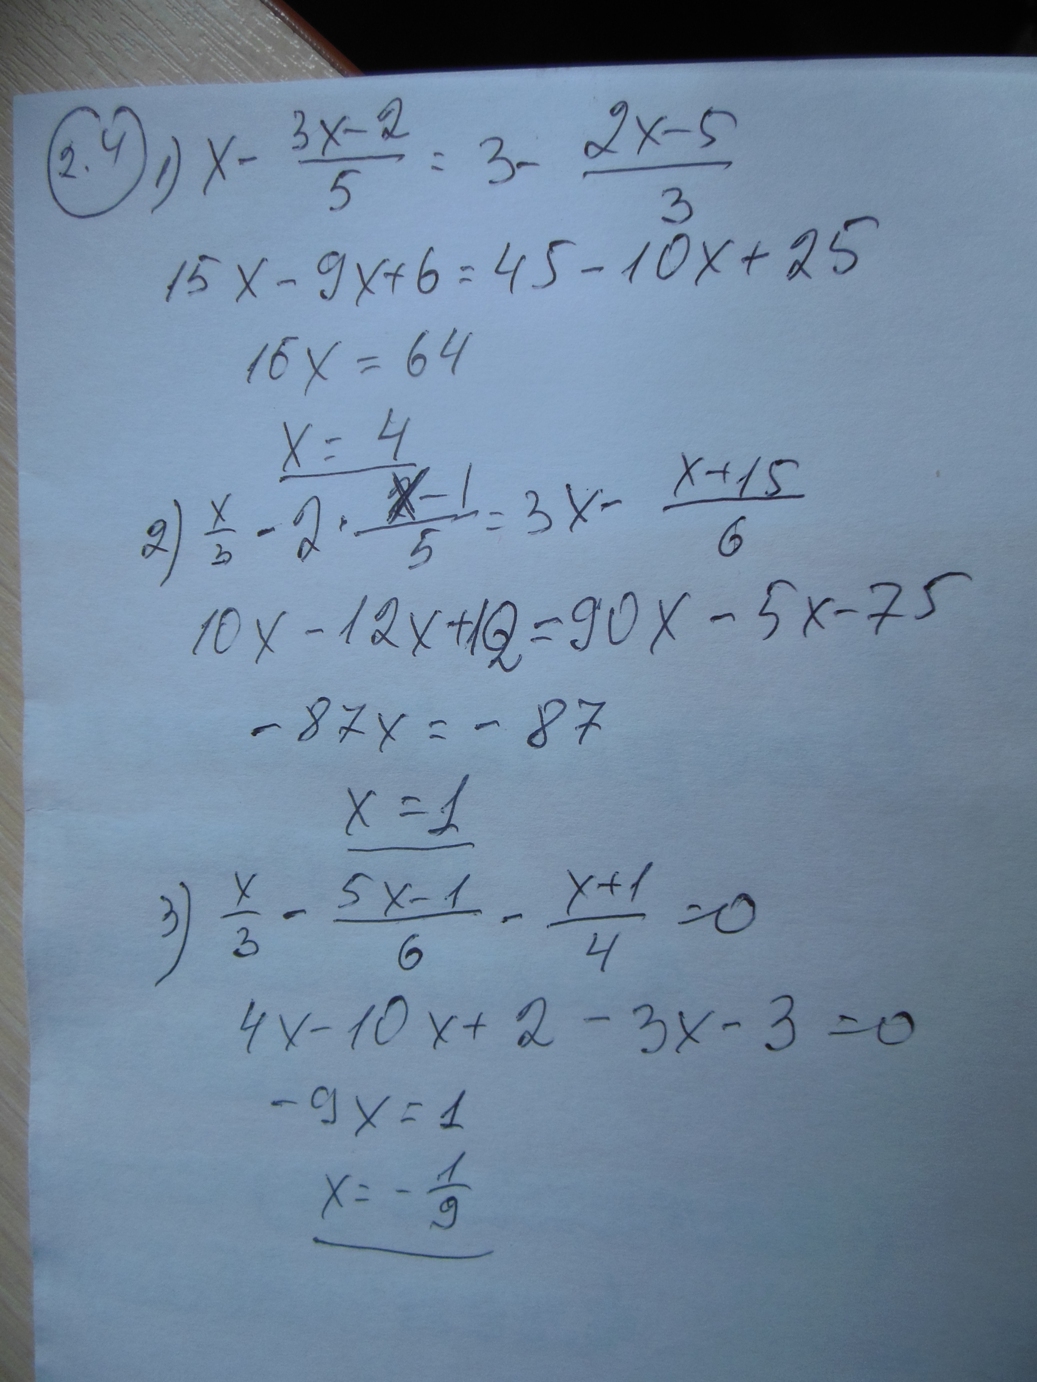 2.4 1) x - (3x-2)/5 = 3 - (2x-5)/3
15x - 9x + 6 = 45 - 10x + 25
16x = 64
x = 4
2) x/3 - 2 · (x-1)/5 = 3x - (x+15)/6
10x - 12x + 12 = 90x - 5x - 75
-87x = -87
x = 1
3) x/3 - (5x-1)/6 - (x+1)/4 = 0
4x - 10x + 2 - 3x - 3 = 0
-9x = 1
x = -1/9